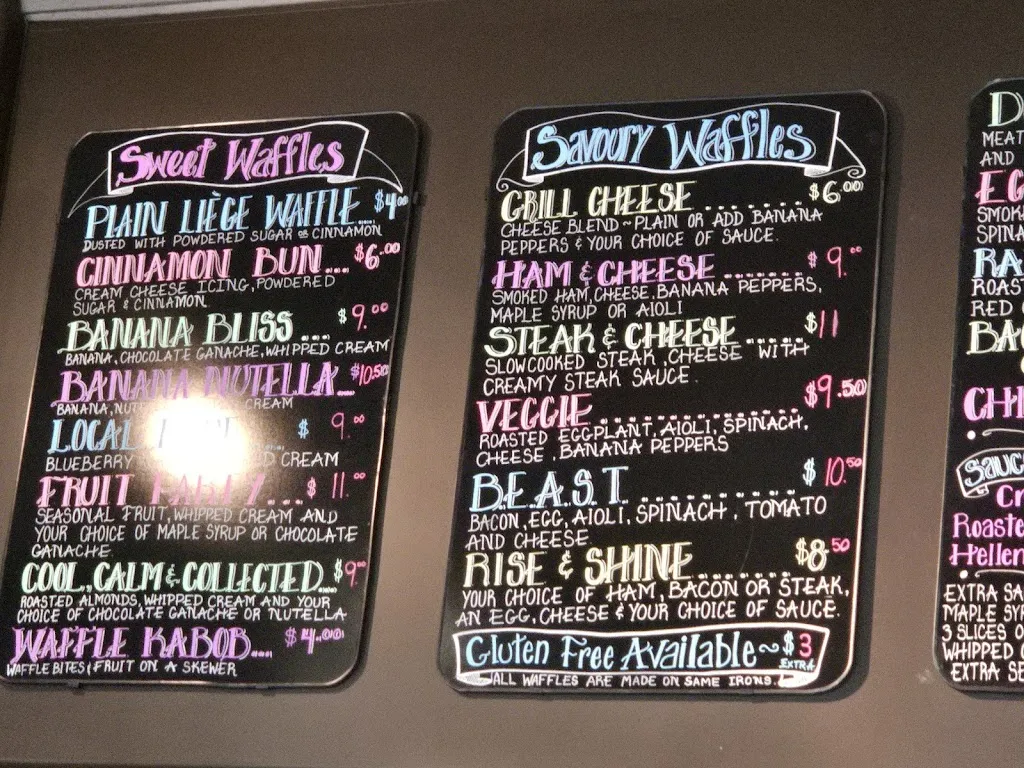 Sweet Waffles
PLAIN LIÈGE WAFFLE $4.00
DUSTED WITH POWDERED SUGAR OR CINNAMON
CINNAMON BUN.... $6.00
CREAM CHEESE ICING, POWDERED
SUGAR & CINNAMON.
BANANA BLISS .... $9.00
BANANA, CHOCOLATE GANACHE, WHIPPED CREAM
BANANA NUTELLA... $10.50
BANANA, CREAM
LOCAL $9.00
BLUEBERRY CREAM
FRUIT PARTY.... $11.00
SEASONAL FRUIT, WHIPPED CREAM AND
YOUR CHOICE OF MAPLE SYRUP OR CHOCOLATE
GANACHE.
COOL, CALM & COLLECTED... $9.00
ROASTED ALMONDS, WHIPPED CREAM AND YOUR
CHOICE OF CHOCOLATE GANACHE OR NUTELLA
WAFFLE KABOB.... $4.00
WAFFLE BITES & FRUIT ON A SKEWER
Savoury Waffles
GRILL CHEESE ........ $6.00
CHEESE BLEND ~ PLAIN OR ADD BANANA
PEPPERS & YOUR CHOICE OF SAUCE.
HAM & CHEESE ........ $9.00
SMOKED HAM, CHEESE, BANANA PEPPERS,
MAPLE SYRUP OR AIOLI
STEAK & CHEESE ...... $11
SLOWCOOKED STEAK, CHEESE WITH
CREAMY STEAK SAUCE.
VEGGIE ............... $9.50
ROASTED EGGPLANT, AIOLI, SPINACH,
CHEESE, BANANA PEPPERS
B.E.A.S.T. ............ $10.50
BACON, EGG, AIOLI, SPINACH, TOMATO
AND CHEESE.
RISE & SHINE ......... $8.50
YOUR CHOICE OF HAM, BACON OR STEAK,
AN EGG, CHEESE & YOUR CHOICE OF SAUCE.
Gluten Free Available ~ $3
EXTRA
ALL WAFFLES ARE MADE ON SAME IRONS.
MEAT
AND
SMOK
SPINA
ROAST
RED
CHI
Sauc
Cr
Roaste
Hellen
EXTRA SA
MAPLE SYR
3 SLICES O
WHIPPED
EXTRA SE